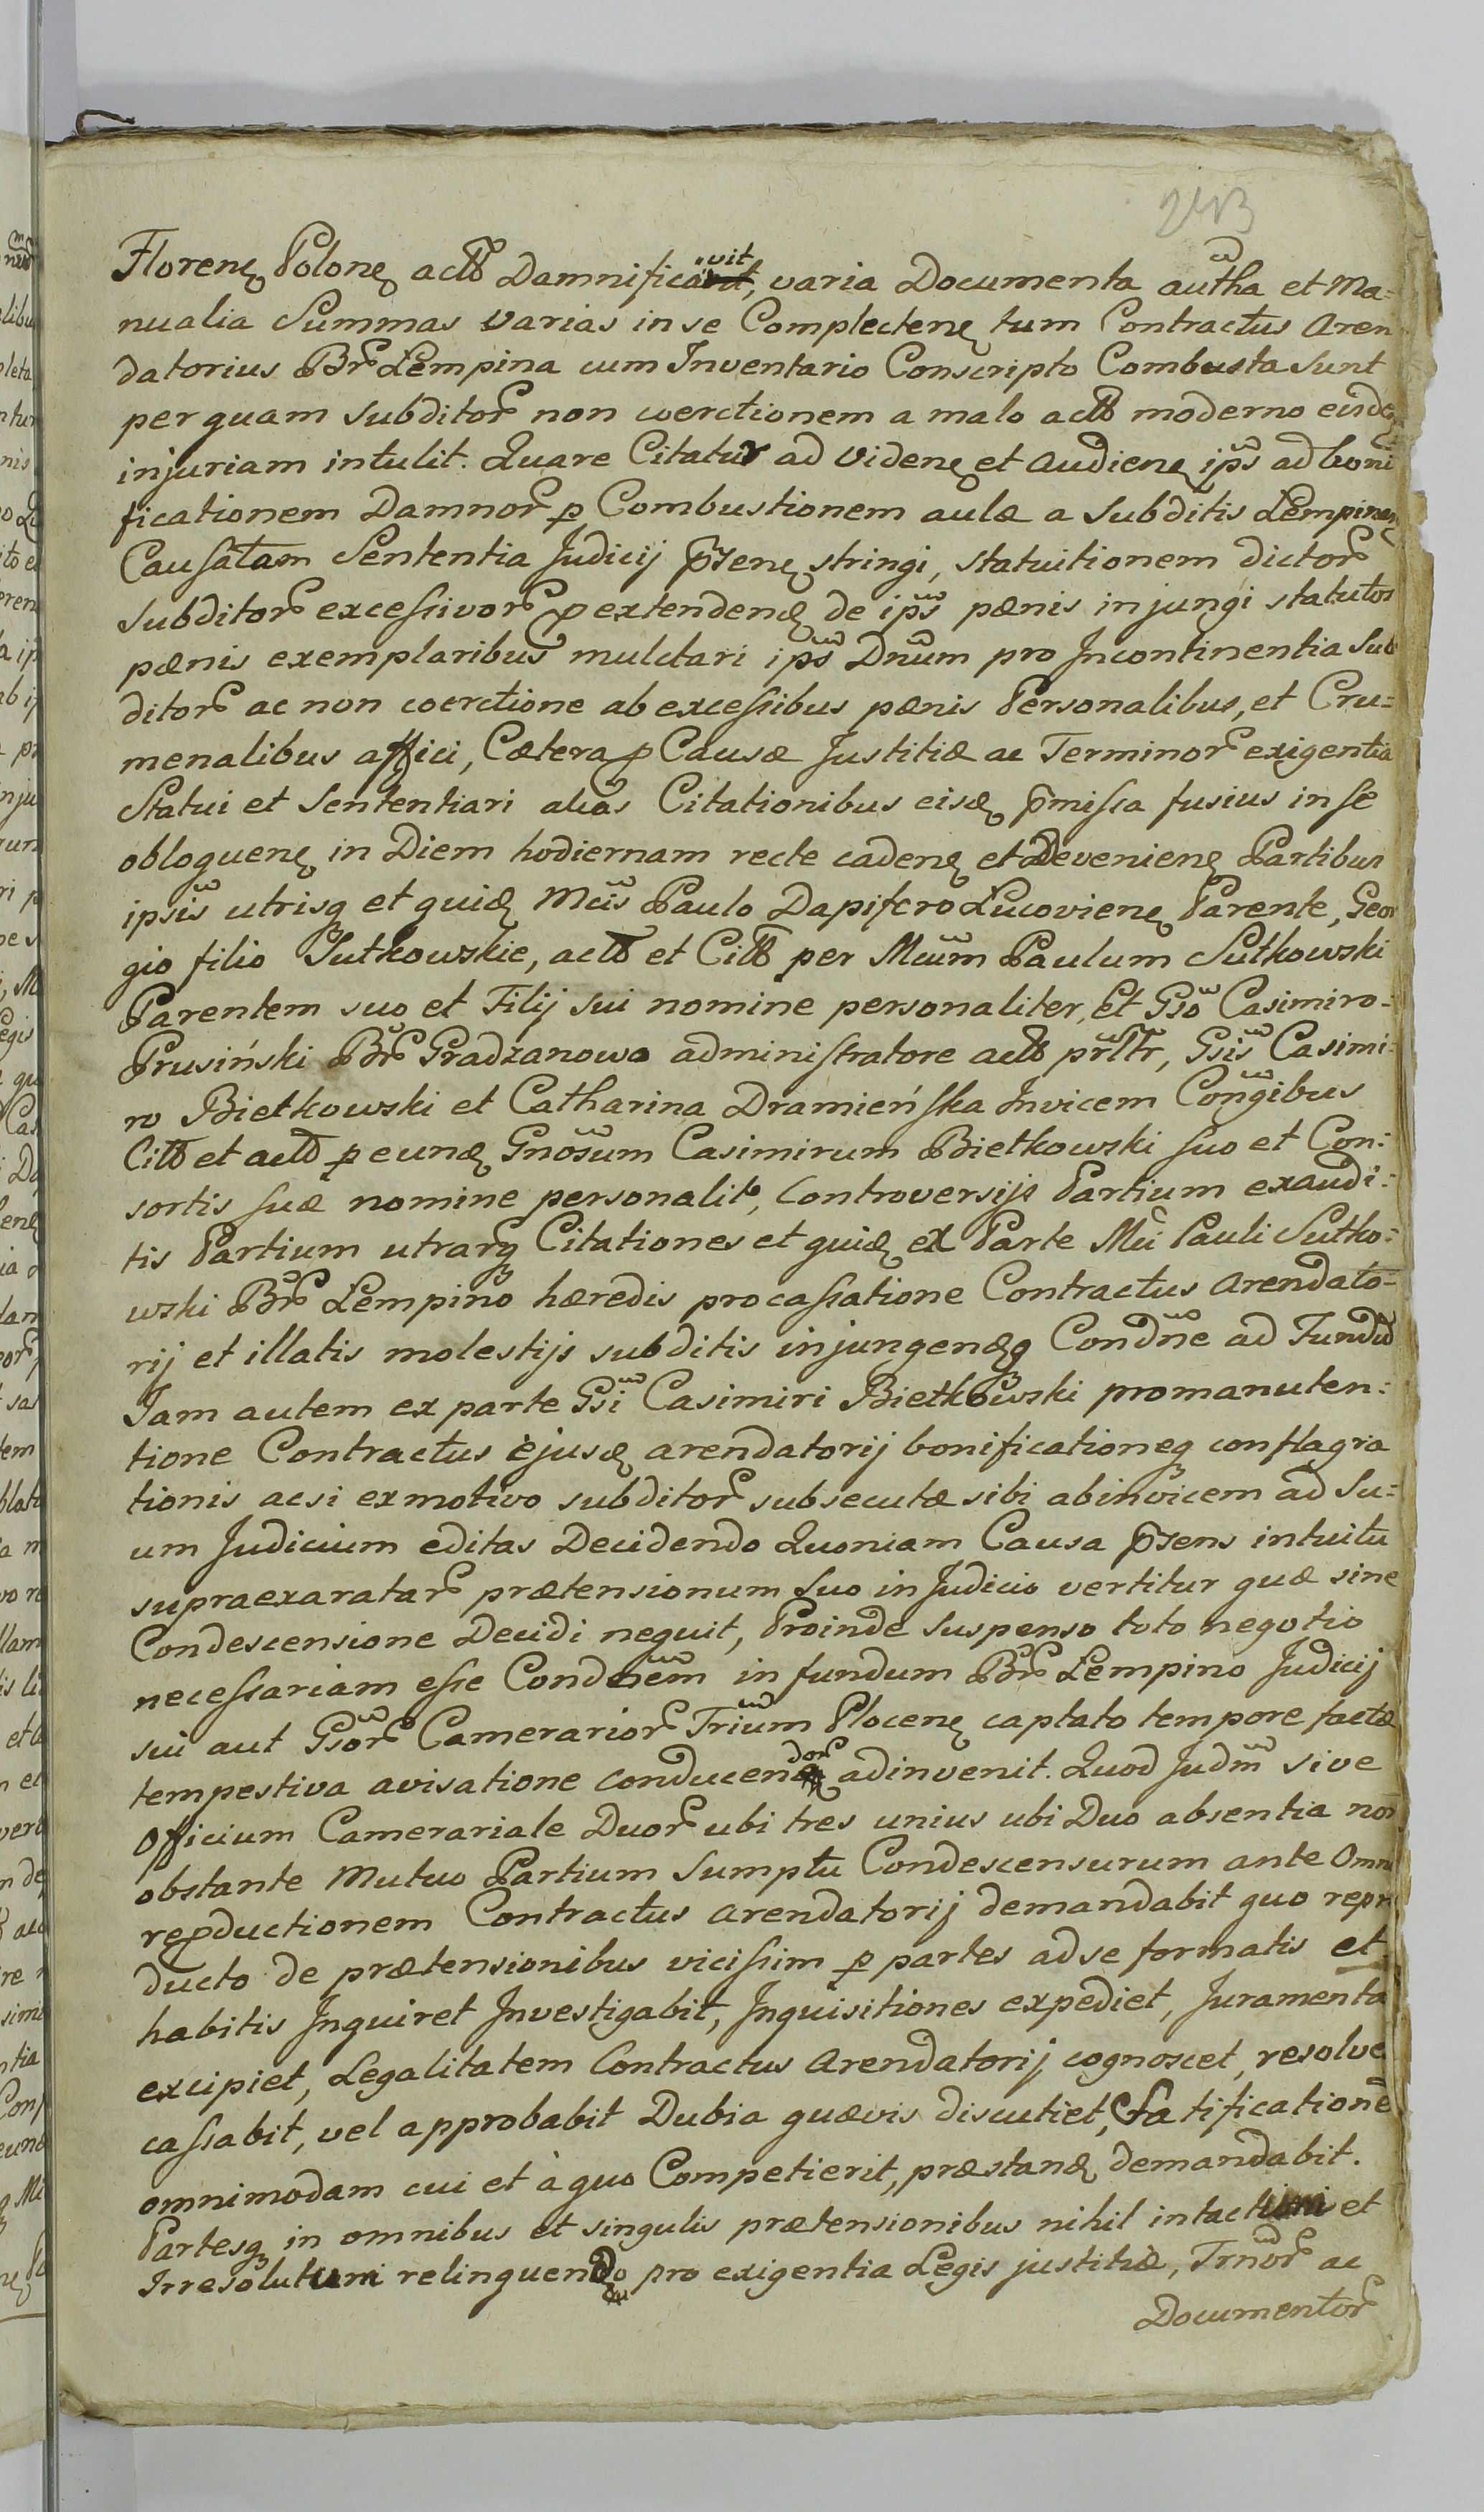 243
Florenę Polonę actŏ Damnificavit, varia Documenta autha et Ma-
nualia Summas varias in se Complectenę tum Contractus Aren
datorius Br̃ Lempina cum Inventario Conscripto Combusta Sunt
per quam Subditor̃ non coerctionem a malo actŏ moderno eisdę
injuriam intulit. Quare Citatur ad Videnę et Audienę ips̃ ad boni
ficationem Damnor̃ p Combustionem aulæ a Subditis Lempinen
Causatam Sententia Judicij p̃senę stringi, statuitionem dictor̃
subditor̃ excessivor̃ p extendendę de ips̃ pænis injungi statutor
pænis exemplaribus mulctari ips̃ Dnũm pro Incontinentia Sub
ditor̃ ac non coerctione ab excessibus pænis Personalibus, et Cru-
menalibus affici, Cætera p Causæ Justitiæ ac Terminor̃ exigentia
Statui et Sententiari aliãs Citationibus eisdę p̃missa fusius in se
obloquenę in Diem hodiernam recte cadenę et Devenienę Partibus
ipsis̃ utrisq et quidę Mcis̃ Paulo Dapifero Lucovienę Parente, Geor
gio filio Sutkowskie, actŏ et Citŏ per Mcũm Paulum Sutkowski
Parentem suo et Filij sui nomine personaliter, et Gsõ Casimiro-
Prusiński Br̃ Gradzanowo administratore actŏ pr̃ltr, Gsis̃ Casimi-
ro Bietkowski et Catharina Dramieńska Invicem Cong̃ibus
Citŏ et actŏ p eundę Gnõsum Casimirum Bietkowski suo et Con-
sortis suæ nomine personalit̃, Controversijs Partium exaudi-
tis Partium utrarq Citationes et quidę ex Parte Mc̃i Pauli Sutko-
wski Br̃ Lempino hæredis pro cassatione Contractus Arendato-
rij et illatis molestijs subditis injungendęq Condñe ad Fundũ
Jam autem ex parte Gsĩ Casimiri Bietkowski pro manuten-
tione Contractus ejusdę arendatorij bonificationeq conflagra
tionis acsi ex motivo subditor̃ subsecutæ sibi abinvicem ad Su-
um Judicium editas Decidendo Quoniam Causa p̃sens intuitu
supraexaratar̃ prætensionum Suo in Judicio vertitur quæ sine
Condescensione Decidi nequit, Proinde Suspenso toto negotio
necessariam esse Condnẽm in fundum Br̃ Lempino Judicij
sui aut Gsor̃ Camerarior̃ Trĩum Plocenę captato tempore factæ
tempestiva avisatione conducendor̃ adinvenit. Quod Judm̃ sive
Officium Camerariale Duor̃ ubi tres unius ubi Duo absentia non
obstante Mutuo Partium Sumptu Condescensurum ante Omn
repductionem Contractus Arendatorij demandabit quo repr
ducto de prætensionibus vicissim p partes ad se formatis et
habitis Inquiret Investigabit, Inquisitiones expediet, Juramenta
excipiet, Legalitatem Contractus Arendatorij cognoscet, resolve
cassabit, vel approbabit Dubia quævis discutiet, Satificationẽ
omnimodam cui et à quo Competierit, præstandę demandabit.
Partesq in omnibus et singulis prætensionibus nihil intactum et
Irresolutum relinquendo pro exigentia Legis justitiæ, Trnor̃ ac
Documentor̃